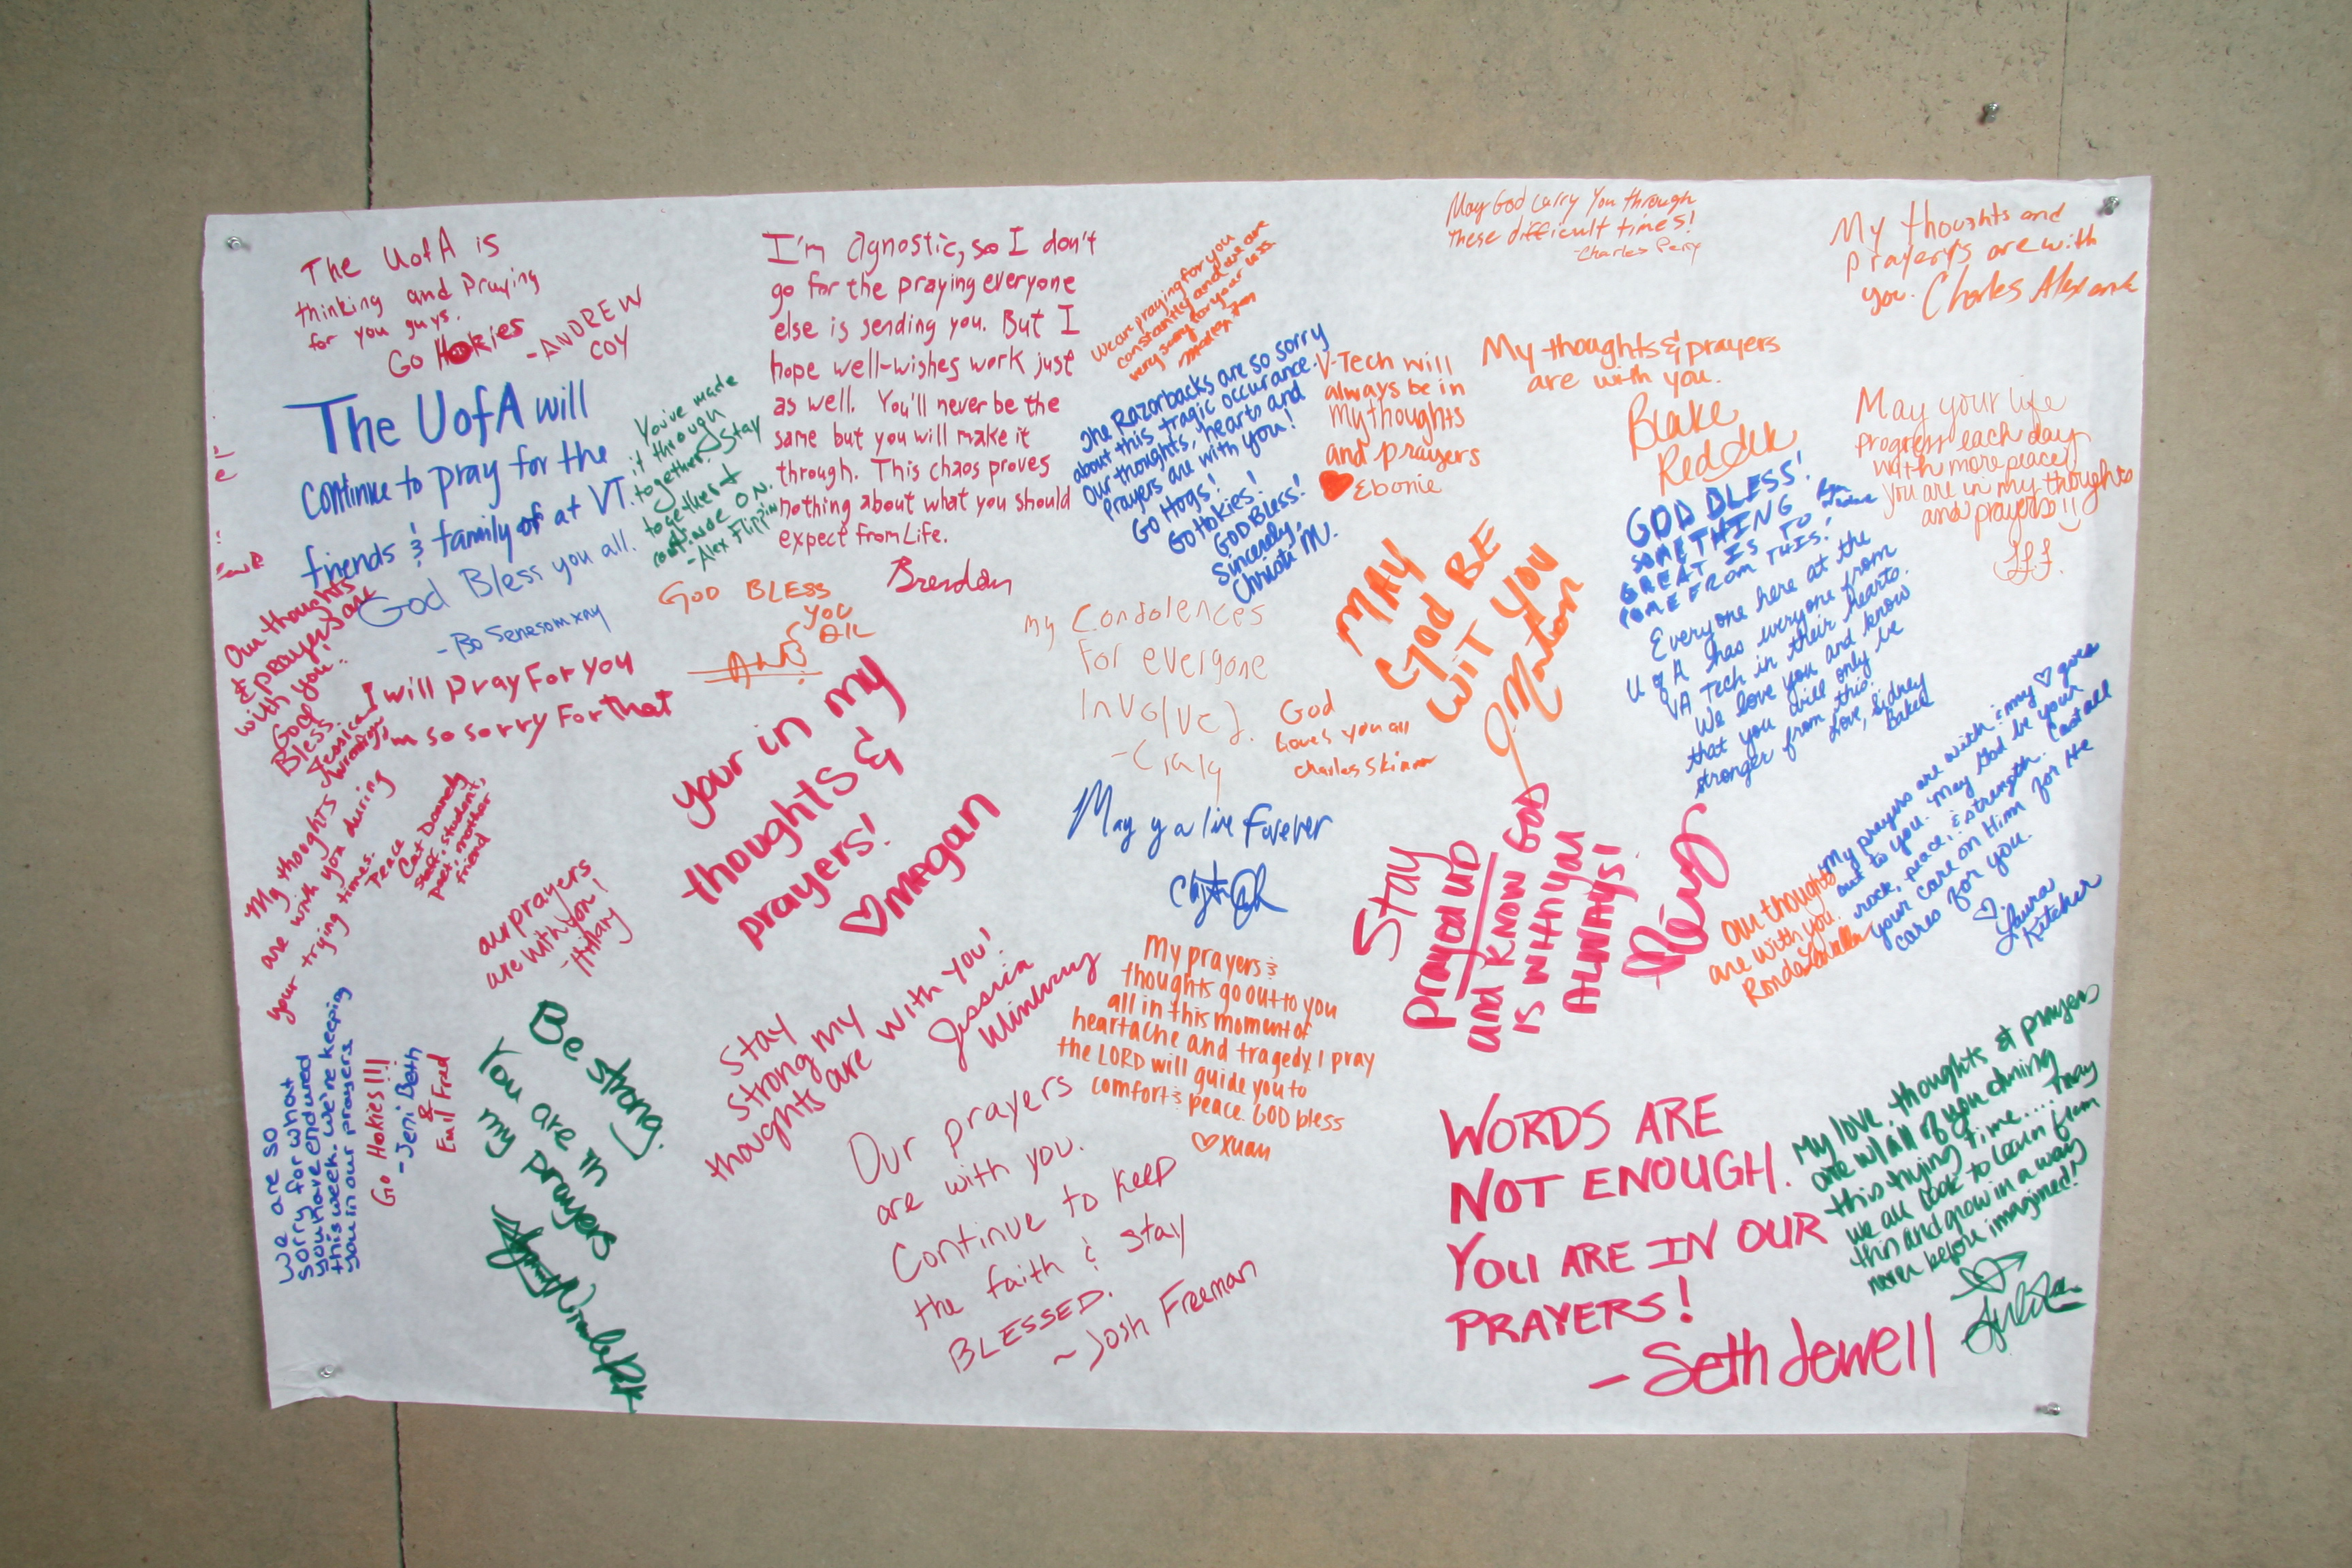 The UofA is
thinking and Praying
for you guys.
Go Hokies
-ANDREW
COY
The UofA will
continue to pray for the
friends & family of at VT.
God Bless you all.
-Bo Senesomxay
You've made
it through
together. Stay
together &
continue ON.
-Alex Flippin
I'm Agnostic, so I don't
go for the praying everyone
else is sending you. But I
hope well-wishes work just
as well. You'll never be the
same but you will make it
through. This chaos proves
nothing about what you should
expect from Life.
Brendan
We are praying for you
constantly and we are
very sorry for your loss.
The Razorbacks are so sorry
about this tragic occurance.
Our thoughts, hearts and
prayers are with you!
Go Hogs!
Go Hokies!
GOD Bless!
Sincerely,
Christi M.
V-Tech will
always be in
my thoughts
and prayers
Ebonie
May God Carry You through
these difficult times!
-Charles Perry
My thoughts & prayers
are with you.
Blake
My thoughts and
prayers are with
you. Charles
May your life
progress each day
with more peace
you are in my thoughts
and prayers!!
GOD BLESS!
SOMETHING
GREAT IS TO
COME FROM THIS!
Everyone here at the
U of A has everyone from
VA Tech in their hearts.
We love you and know
that you will only be
stronger from this!
Love, Sidney
Baker
MAY
GOD BE
WIT YOU
GOD BLESS
YOU
ALL
my Condolences
For everyone
Involved.
God
loves you all
Charles Skinner
Our thoughts
& prayers are
with you!
God
Bless
Jessica
I will pray For you
I'm so sorry For that
My thoughts
are with you during
your trying times.
Peace
Cat Donnely
staff, student,
poet, mother
friend
your in my
thoughts &
prayers!
♡Megan
our prayers
are with you!
-Hillary
May you live Forever
Stay
prayed up
and KNOW GOD
is with you
ALWAYS!
My prayers are with & my ♡ goes
out to you. May God be your
rock, peace, & strength. Cast all
your care on Him for He
cares for you.
♡ Laura
Kitcher
Our thoughts
are with you.
Ronda
My prayers &
thoughts go out to you
all in this moment of
heartache and tragedy. I pray
the LORD will guide you to
comfort & peace. GOD bless
♡ Xuan
Stay
strong my
thoughts are with you!
Jessica
We are so
sorry for what
you have endured
this week. We're keeping
you in our prayers
Go Hokies!!!
-Jeni Beth
&
Emil Fred
Be strong.
You are in
my prayers
Our prayers
are with you.
Continue to keep
the faith & stay
BLESSED.
~Josh Freeman
WORDS ARE
NOT ENOUGH.
YOU ARE IN OUR
PRAYERS!
-Seth Jewell
My love, thoughts & prayers
are w/ all of you during
this trying time.... may
we all look to learn from
this and grow in a way
never before imagined!